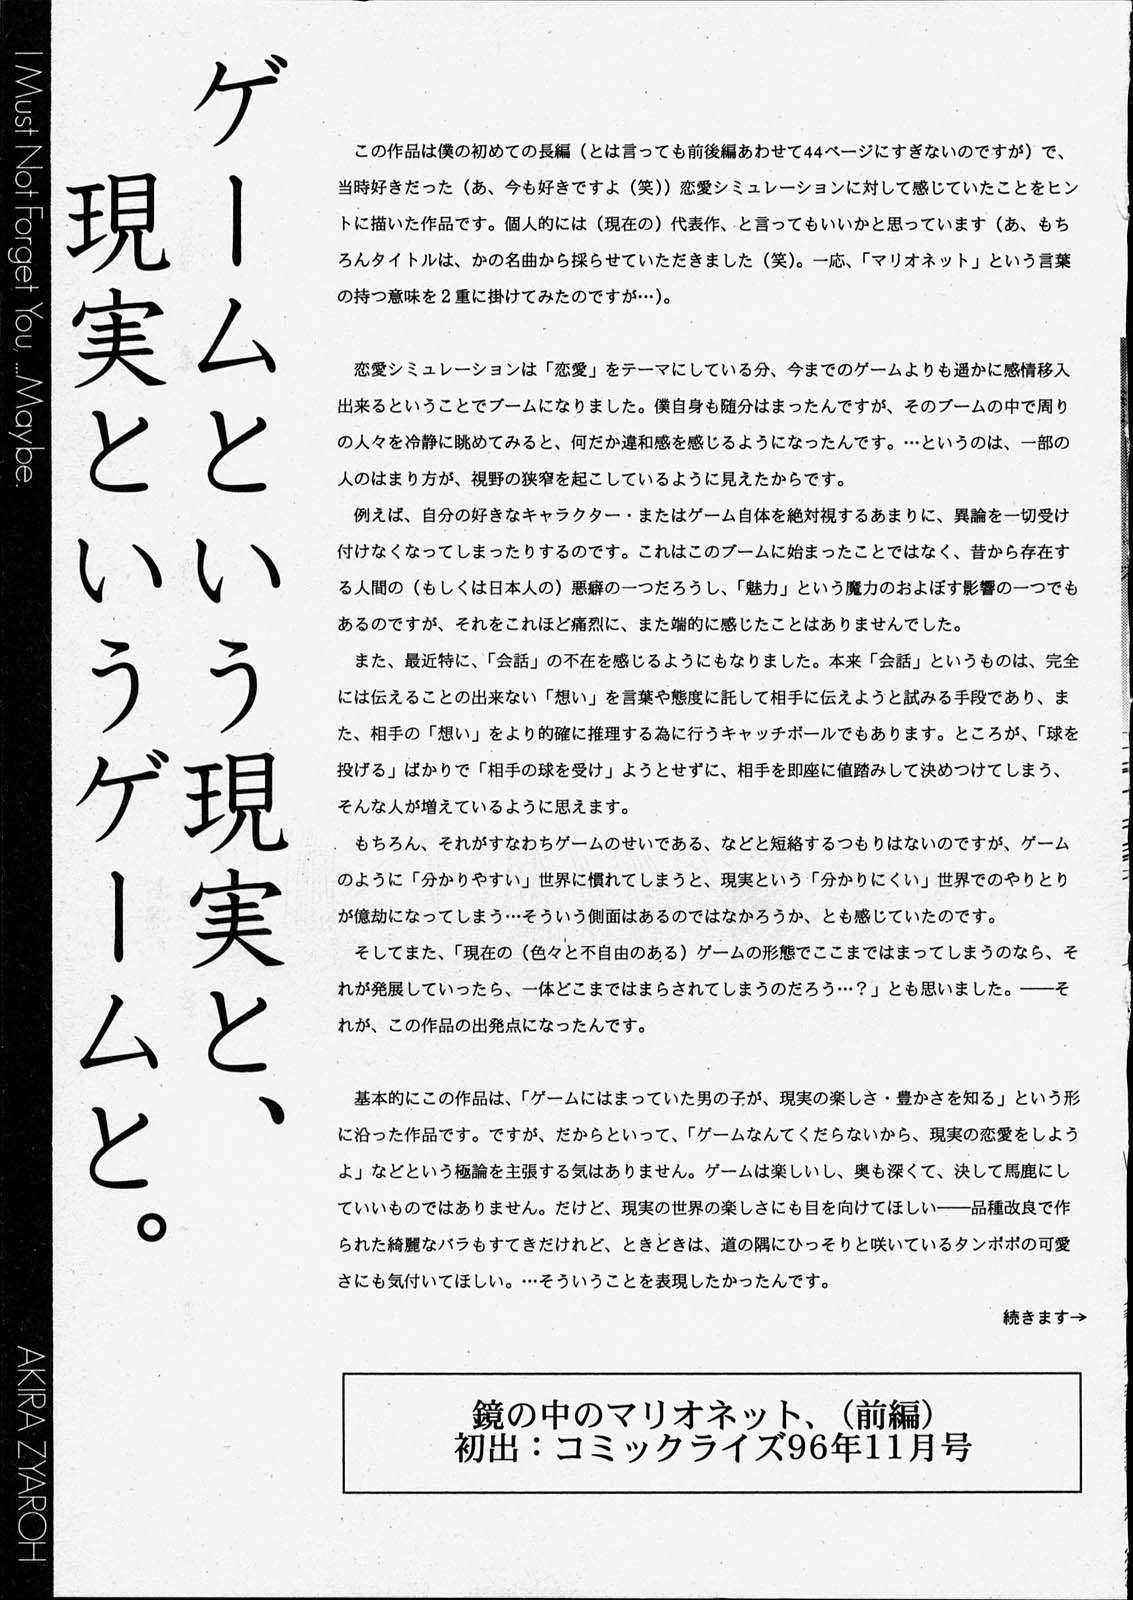 I Must Not Forget You, ...Maybe.
AKIRA ZYAROH
ゲームという現実と、
現実というゲームと。
この作品は僕の初めての長編（とは言っても前後編あわせて44ページにすぎないのですが）で、
当時好きだった（あ、今も好きですよ（笑））恋愛シミュレーションに対して感じていたことをヒン
トに描いた作品です。個人的には（現在の）代表作、と言ってもいいかと思っています（あ、もち
ろんタイトルは、かの名曲から採らせていただきました（笑）。一応、「マリオネット」という言葉
の持つ意味を２重に掛けてみたのですが…）。
恋愛シミュレーションは「恋愛」をテーマにしている分、今までのゲームよりも遥かに感情移入
出来るということでブームになりました。僕自身も随分はまったんですが、そのブームの中で周り
の人々を冷静に眺めてみると、何だか違和感を感じるようになったんです。…というのは、一部の
人のはまり方が、視野の狭窄を起こしているように見えたからです。
例えば、自分の好きなキャラクター・またはゲーム自体を絶対視するあまりに、異論を一切受け
付けなくなってしまったりするのです。これはこのブームに始まったことではなく、昔から存在す
る人間の（もしくは日本人の）悪癖の一つだろうし、「魅力」という魔力のおよぼす影響の一つでも
あるのですが、それをこれほど痛烈に、また端的に感じたことはありませんでした。
また、最近特に、「会話」の不在を感じるようにもなりました。本来「会話」というものは、完全
には伝えることの出来ない「想い」を言葉や態度に託して相手に伝えようと試みる手段であり、ま
た、相手の「想い」をより的確に推理する為に行うキャッチボールでもあります。ところが、「球を
投げる」ばかりで「相手の球を受け」ようとせずに、相手を即座に値踏みして決めつけてしまう、
そんな人が増えているように思えます。
もちろん、それがすなわちゲームのせいである、などと短絡するつもりはないのですが、ゲーム
のように「分かりやすい」世界に慣れてしまうと、現実という「分かりにくい」世界でのやりとり
が億劫になってしまう…そういう側面はあるのではなかろうか、とも感じていたのです。
そしてまた、「現在の（色々と不自由のある）ゲームの形態でここまではまってしまうのなら、そ
れが発展していったら、一体どこまではまらされてしまうのだろう…？」とも思いました。――そ
れが、この作品の出発点になったんです。
基本的にこの作品は、「ゲームにはまっていた男の子が、現実の楽しさ・豊かさを知る」という形
に沿った作品です。ですが、だからといって、「ゲームなんてくだらないから、現実の恋愛をしよう
よ」などという極論を主張する気はありません。ゲームは楽しいし、奥も深くて、決して馬鹿にし
ていいものではありません。だけど、現実の世界の楽しさにも目を向けてほしい――品種改良で作
られた綺麗なバラもすてきだけれど、ときどきは、道の隅にひっそりと咲いているタンポポの可愛
さにも気付いてほしい。…そういうことを表現したかったんです。
続きます→
鏡の中のマリオネット、（前編）
初出：コミックライズ96年11月号